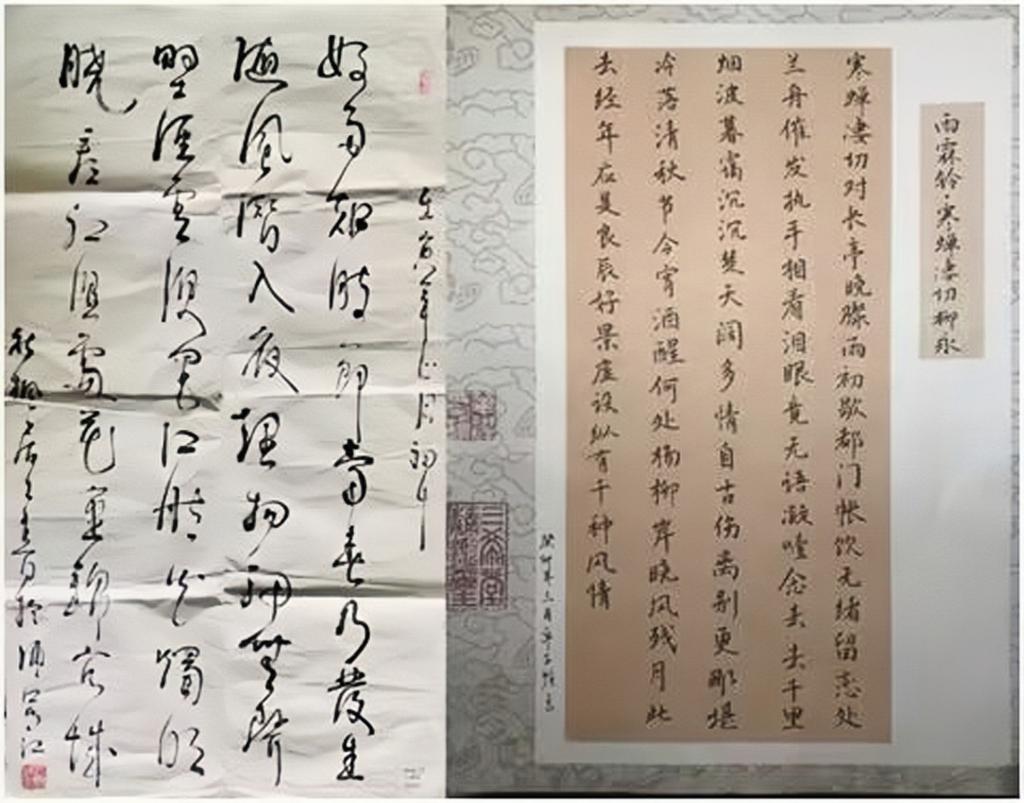 好雨知時節當春乃發生
隨風潛入夜潤物細無聲
野徑雲俱黑江船火獨明
曉看紅濕處花重錦官城
雨霖铃·寒蝉凄切柳永
寒蝉凄切对长亭晚骤雨初歇都门帐饮无绪留恋处
兰舟催发执手相看泪眼竟无语凝噎念去去千里
烟波暮霭沉沉楚天阔多情自古伤离别更那堪
冷落清秋节今宵酒醒何处杨柳岸晓风残月此
去经年应是良辰好景虚设纵有千种风情
癸卯年三月
三希堂